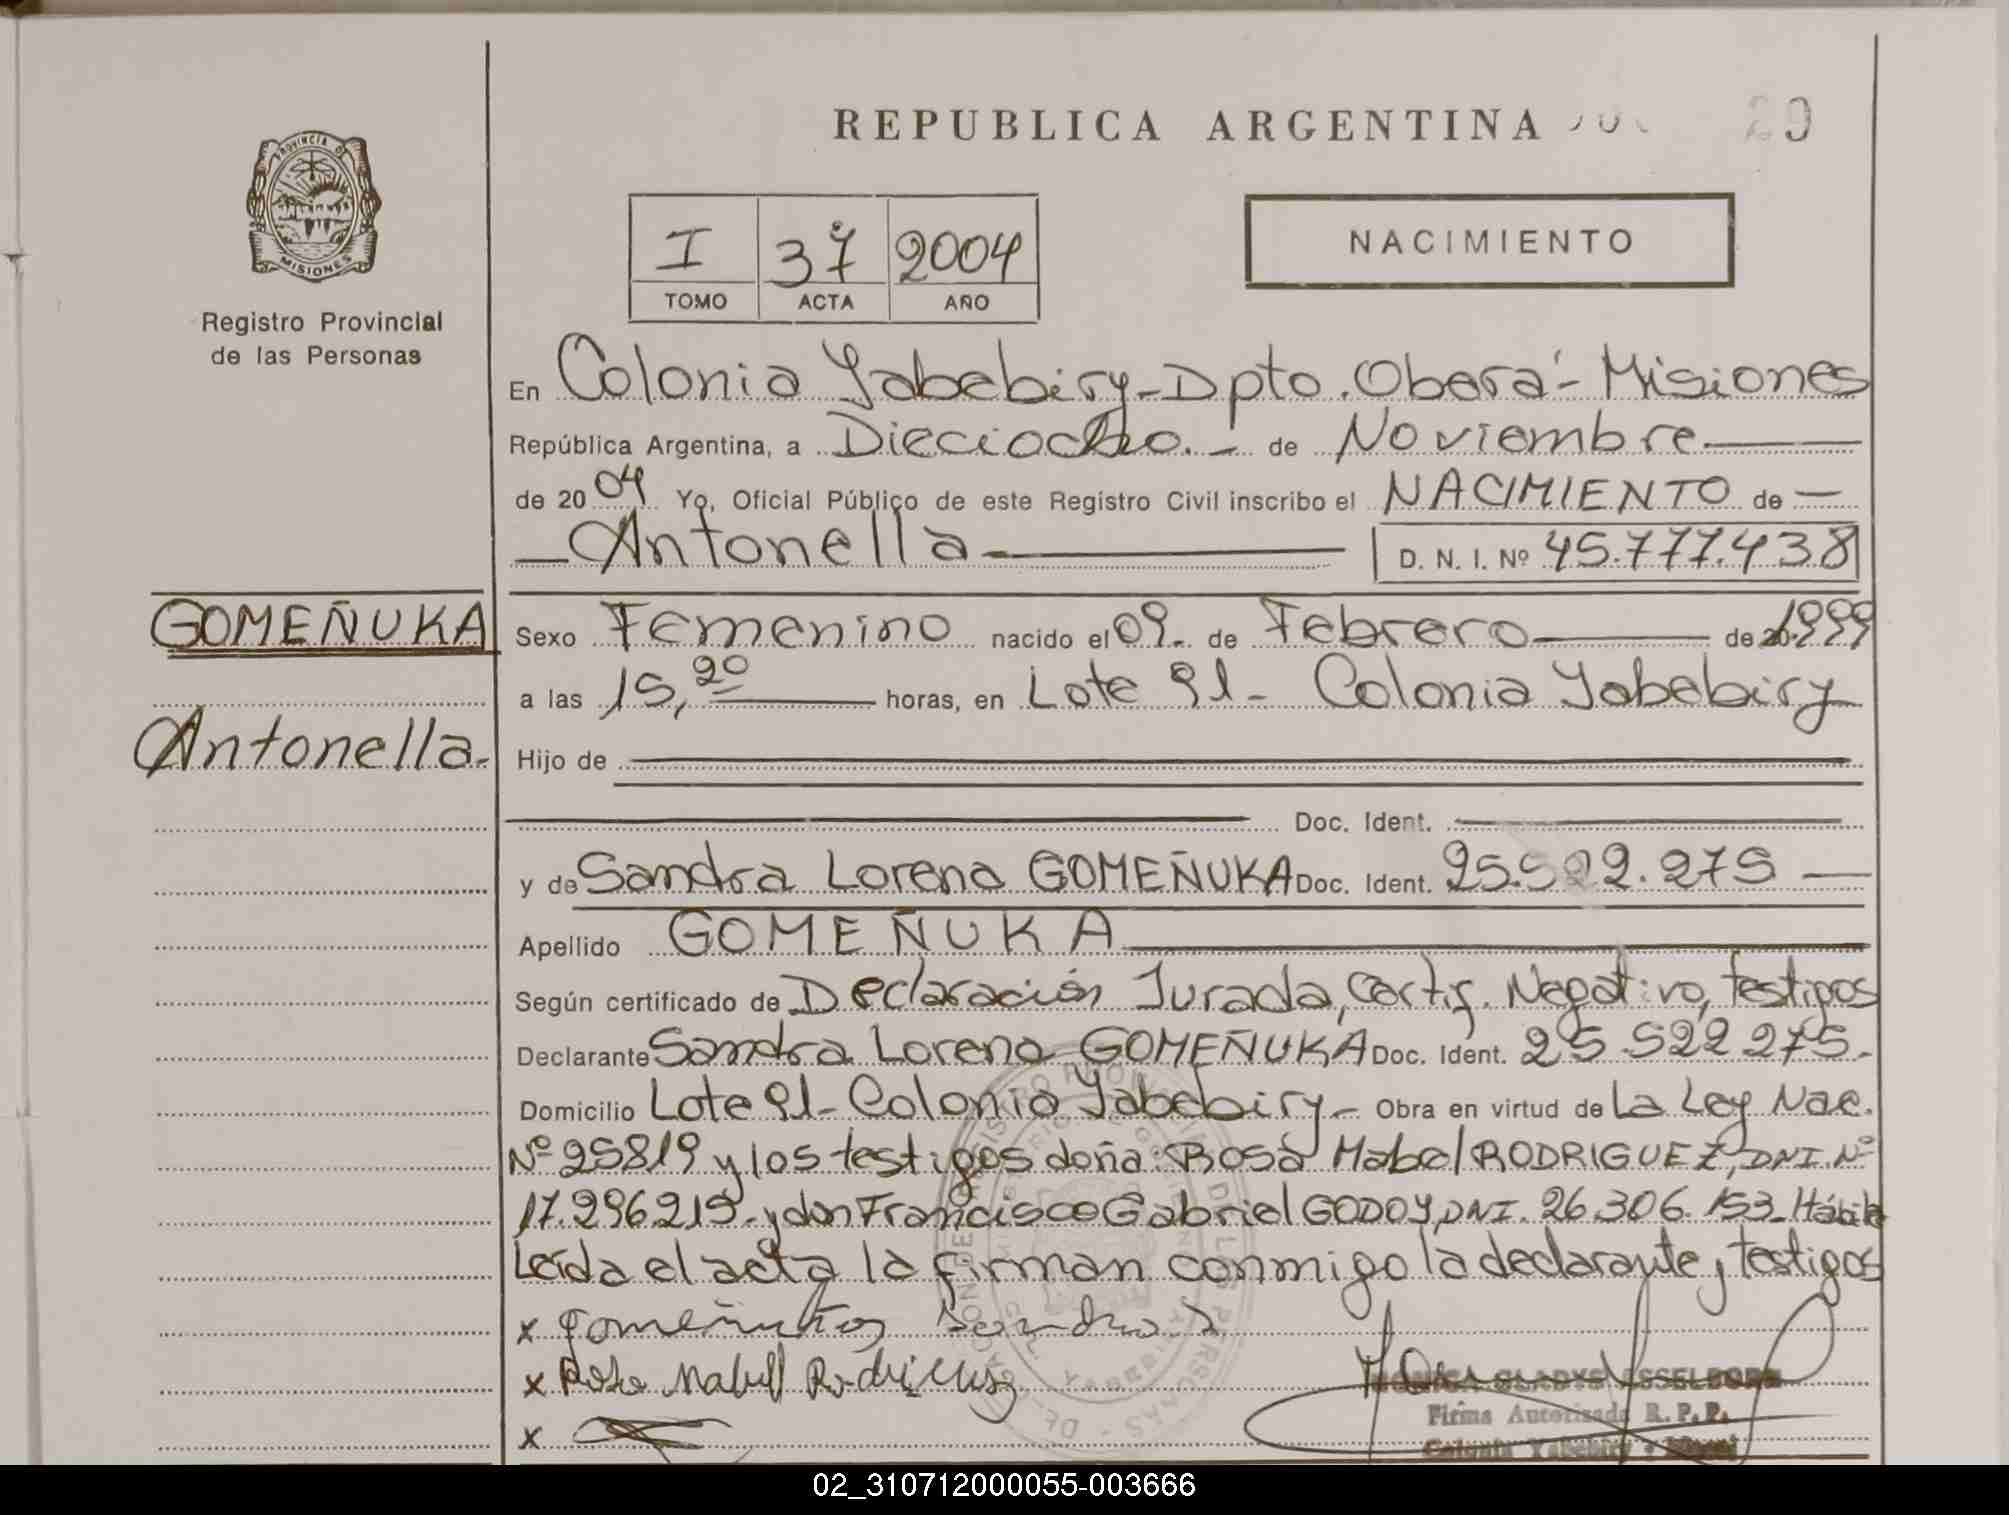 REPUBLICA ARGENTINA
29
PROVINCIA D
MISIONES
Registro Provincial
de las Personas
I 37 2004
TOMO ACTA AÑO
NACIMIENTO
En Colonia Yabebiry - Dpto. Oberá - Misiones
República Argentina, a Dieciocho. - de Noviembre
de 2004 Yo, Oficial Público de este Registro Civil inscribo el NACIMIENTO de
Antonella D. N. I. Nº 45.777.438
GOMEÑUKA
Antonella.
Sexo Femenino nacido el 09. de Febrero de 1999
a las 15,20 horas, en Lote 91 - Colonia Yabebiry
Hijo de
Doc. Ident.
y de Sandra Lorena GOMEÑUKA Doc. Ident. 25.522.275
Apellido GOMEÑUKA
Según certificado de Declaración Jurada, Certif. Negativo, testigos
Declarante Sandra Lorena GOMEÑUKA Doc. Ident. 25.522 275.
Domicilio Lote 91 - Colonia Yabebiry - Obra en virtud de La Ley Nac.
Nº 25819 y los testigos doña: Rosa Mabel RODRIGUEZ, DNI. Nº
17.296219. y don Francisco Gabriel GODOY, DNI. 26.306.153. Hábiles
Leída el acta la firman conmigo la declarante y testigos
x Gomeñuka Sandra L
x Rosa Mabel Rodriguez
x
MONICA GLADYS ESSELDORF
Firma Autorizada R. P. P.
Colonia Yabebiry - Mnes
02_310712000055-003666